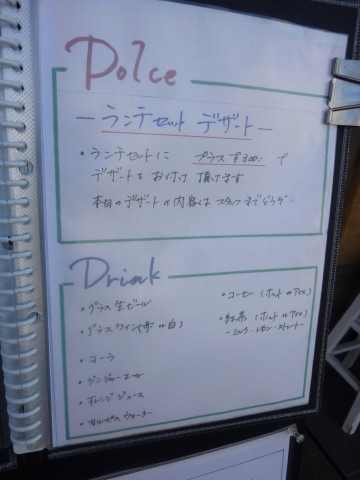 Dolce
— ランチセット デザート —
・ランチセットに プラス ¥300- で
デザートを お付け 頂けます
本日のデザートの内容は スタッフまでどうぞ
Drink
・グラス生ビール
・グラスワイン(赤 or 白)
・コーラ
・ジンジャーエール
・オレンジジュース
・カルピスウォーター
・コーヒー (ホット or アイス)
・紅茶 (ホット or アイス)
—ミルク・レモン・ストレート—